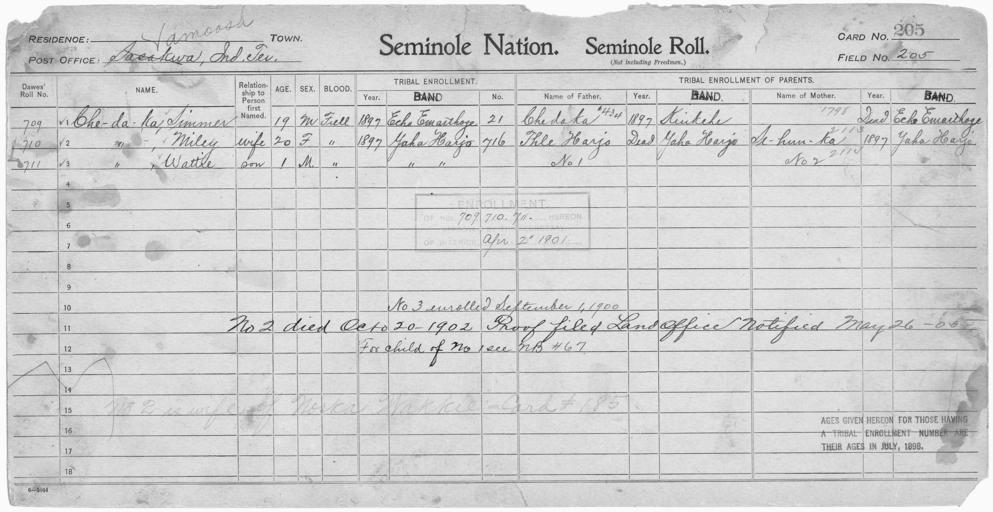 RESIDENCE: TOWN.
POST OFFICE: Sasakwa, Ind. Ter.
Seminole Nation. Seminole Roll.
(Not including Freedmen.)
CARD NO. 205
FIELD NO. 205
Dawes' Roll No. NAME. Relationship to Person first Named. AGE. SEX. BLOOD. TRIBAL ENROLLMENT. TRIBAL ENROLLMENT OF PARENTS.
Year. BAND No. Name of Father. Year. BAND. Name of Mother. Year. BAND.
709 √1 Che-da-ka, Simmer 19 M Full 1897 Echo Emarthoge 21 Chedaka #434 1897 1798 Dead Echo Emarthoge
710 √2 " -, Miley wife 20 F " 1897 Yaha Harjo 716 Thle Harjo Dead Yaha Harjo 1897 Yaha Harjo
711 √3 " , Wattie son 1 M " " " No 1 No 2
4
5 ENROLLMENT
OF NOS. 709, 710, 711 HEREON
6
7 OF INTERIOR Apr 2" 1901
8
9
10 No 3 enrolled September 1, 1900
11 No 2 died Octo 20-1902 Proof filed Land Office Notified May 26-05
12 For child of No 1 see NB #67
13
14
15 No 2 is wife of Noska Card # 185.
16
17
18
AGES GIVEN HEREON FOR THOSE HAVING
A TRIBAL ENROLLMENT NUMBER ARE
THEIR AGES IN JULY, 1898.